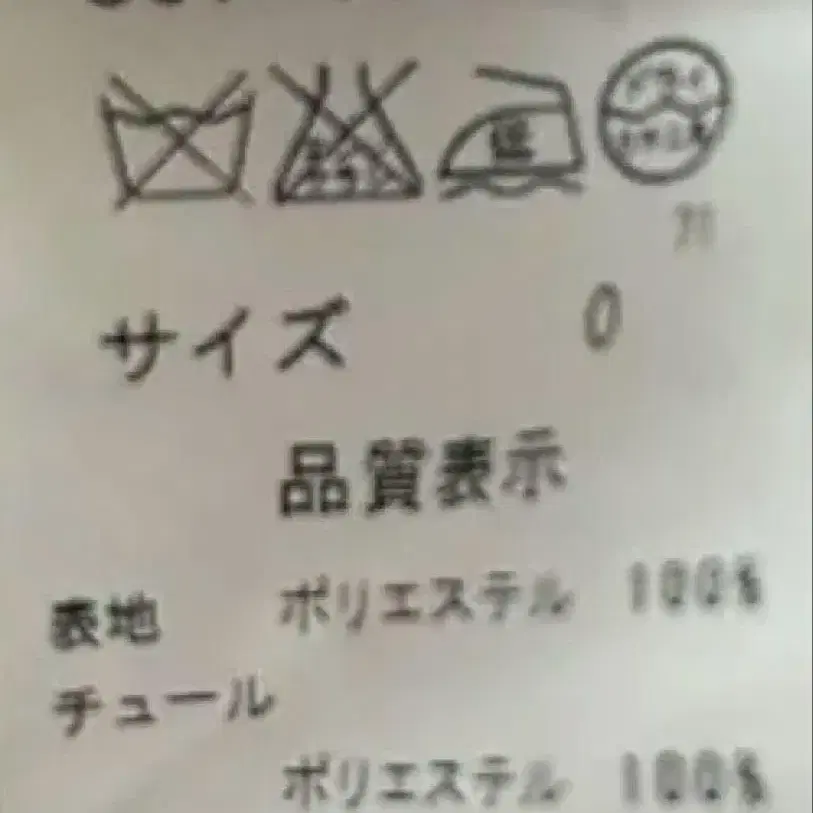 ドライ
セキユ系
サイズ 0
品質表示
表地 ポリエステル 100%
チュール
ポリエステル 100%